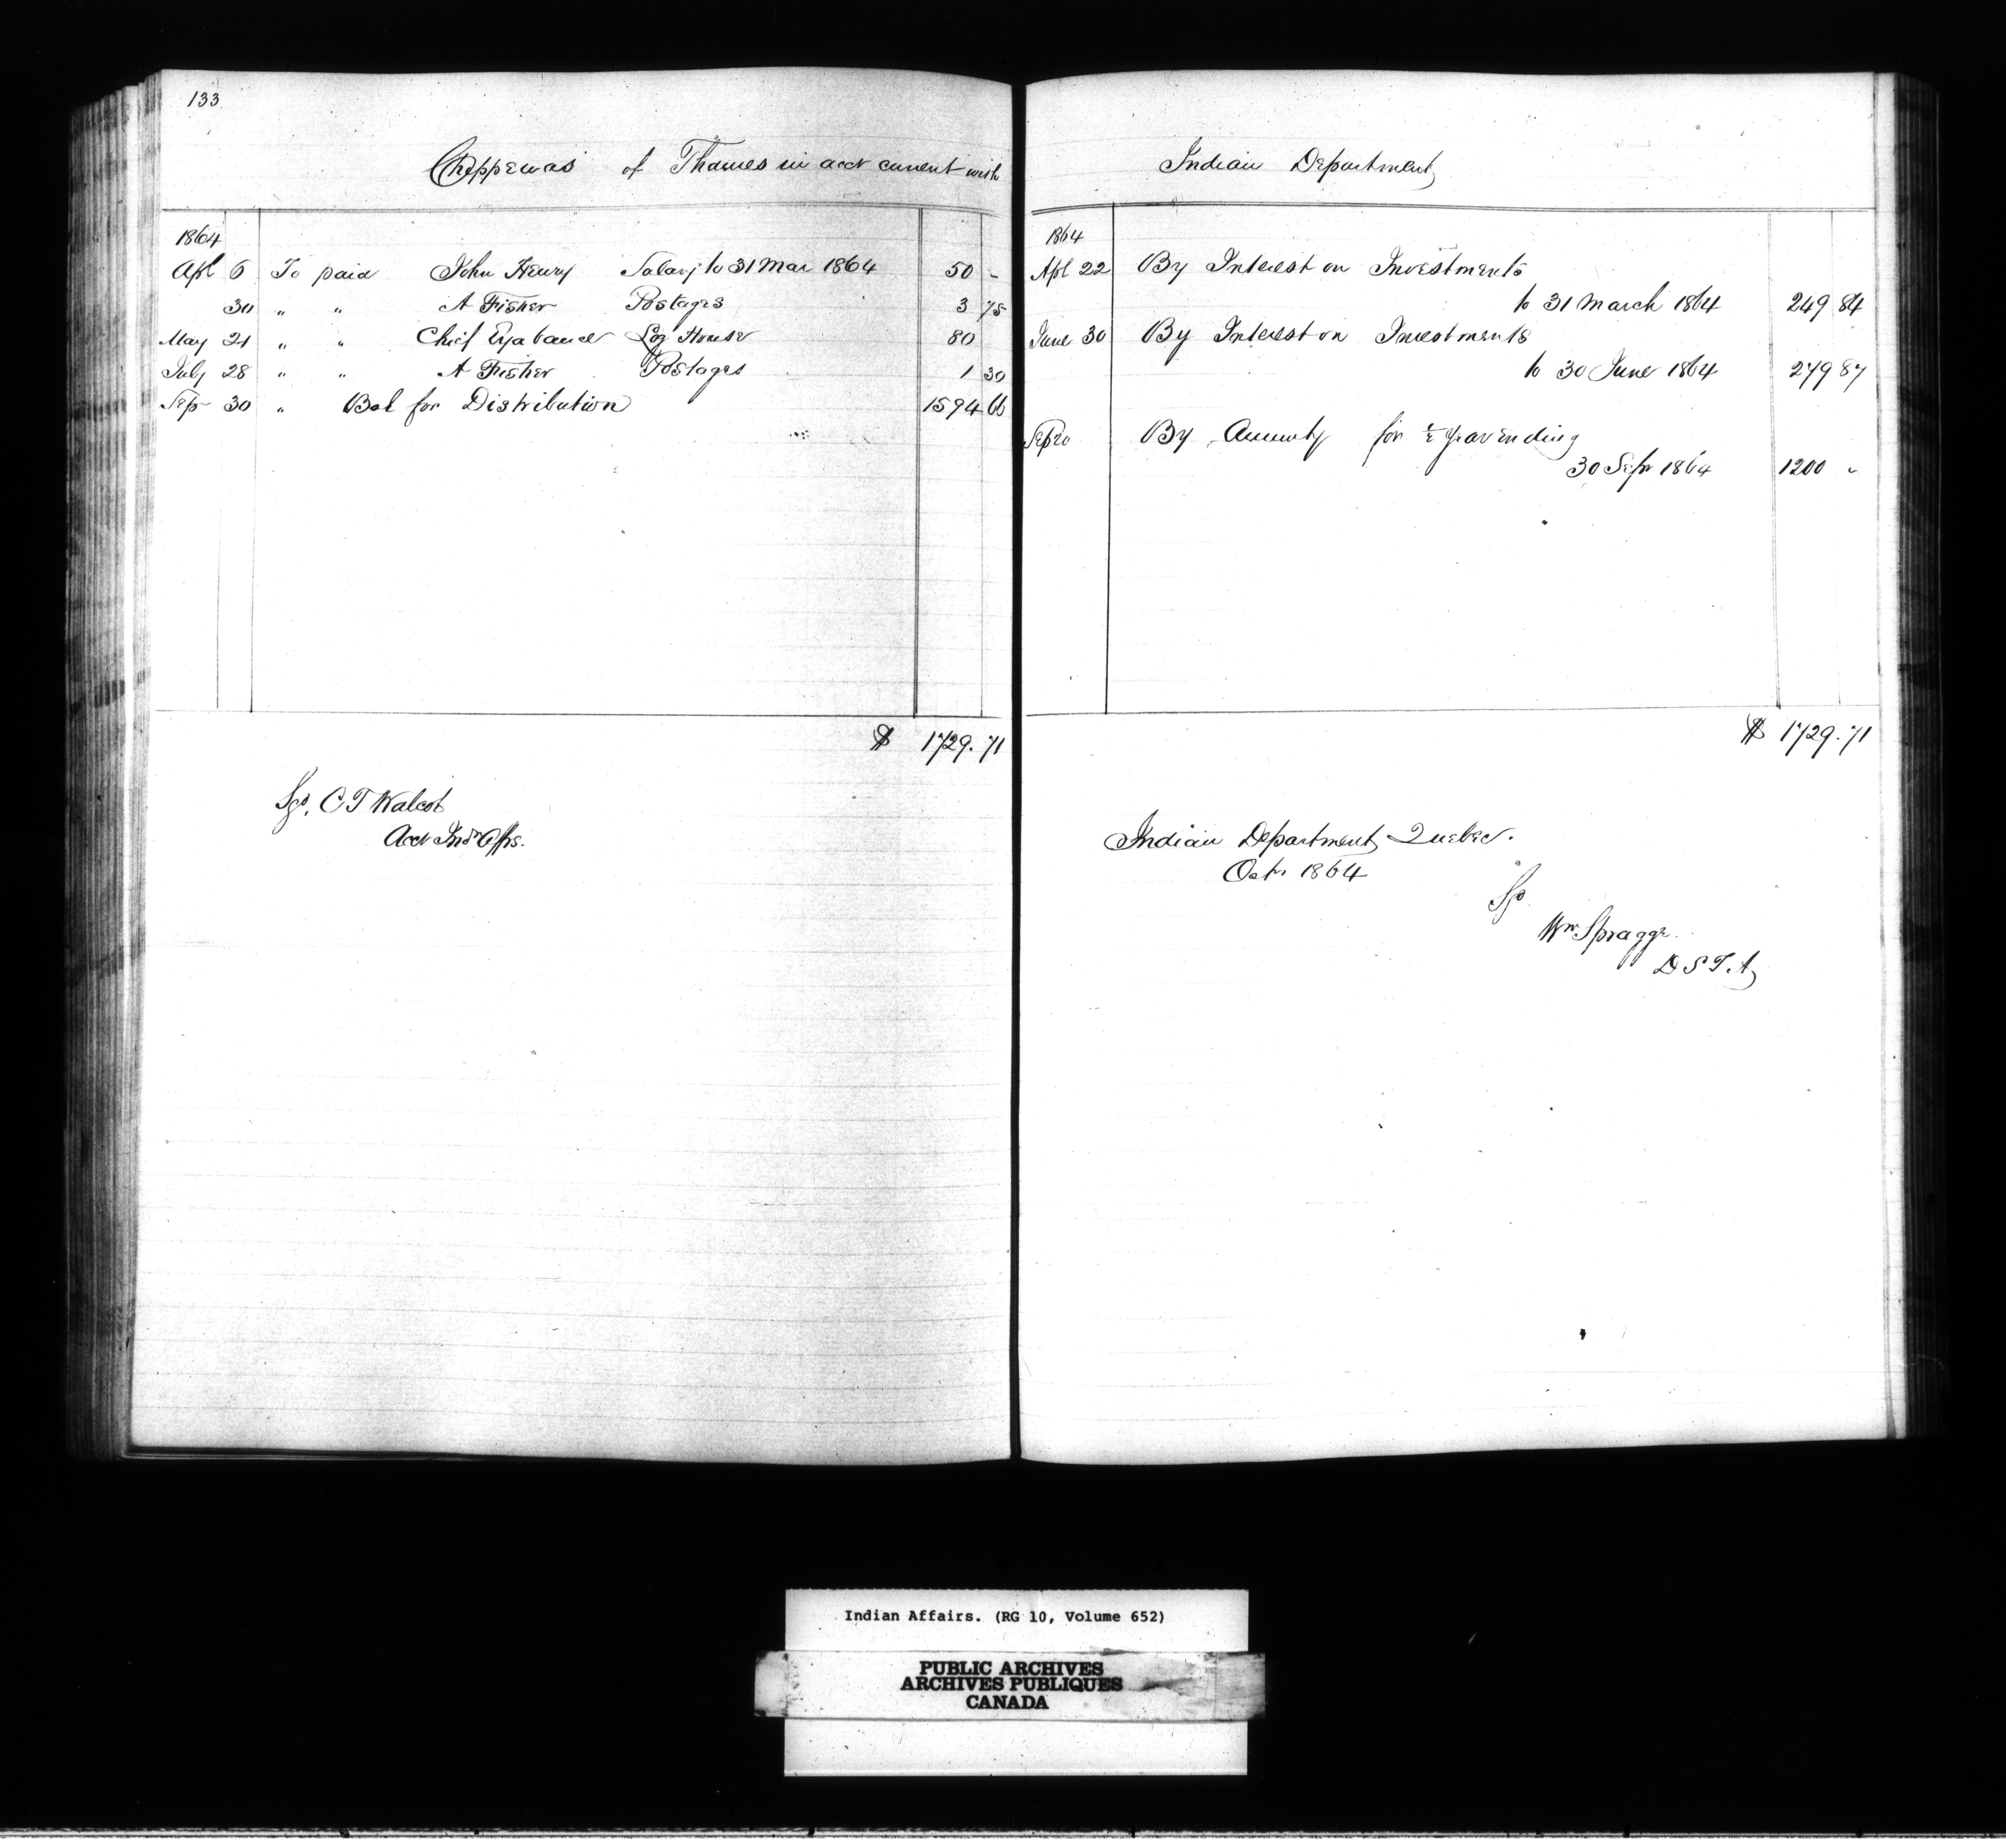 133
Chippewas of Thames in acct current with
1864
Apl 6 To paid John Henry Salary to 31 Mar 1864 50 -
30 " " A Fisher Postages 3 75
May 21 " " Chief Log House 80
July 28 " " A Fisher Postages 1 30
Sep 30 " Bal for Distribution 1594 66
$ 1729.71
Sgd. C T Walcot
Acct Indn Affrs.
Indian Department
1864
Apl 22 By Interest on Investments
to 31 March 1864 249 84
June 30 By Interest on Investments
to 30 June 1864 279 87
By Annuity for ½ Year ending
30 Sepr 1864 1200 "
$ 1729.71
Indian Department Quebec.
Octr 1864
Sgd
Wm Spragge
D S I. A
Indian Affairs. (RG 10, Volume 652)
PUBLIC ARCHIVES
ARCHIVES PUBLIQUES
CANADA